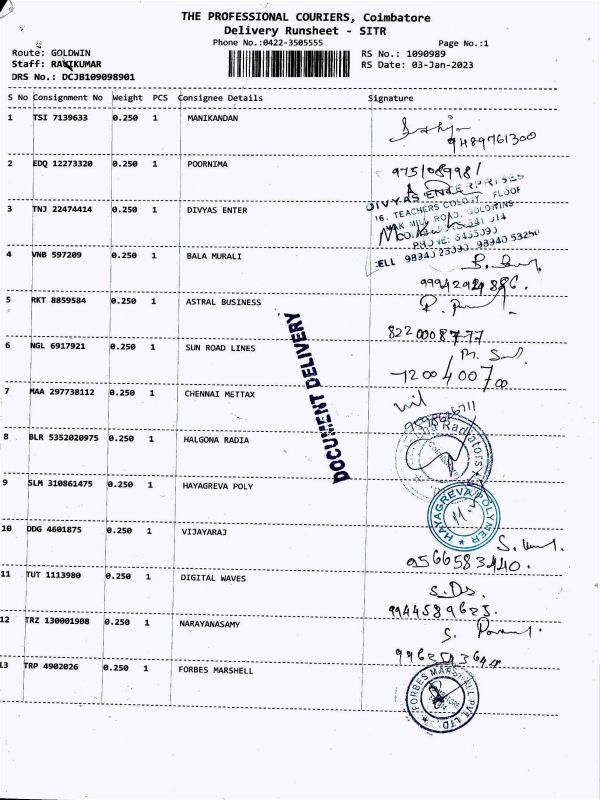 THE PROFESSIONAL COURIERS, Coimbatore
Delivery Runsheet - SITR
Phone No.:0422-3505555 Page No.:1
Route: GOLDWIN RS No.: 1090989
Staff: RAVIKUMAR RS Date: 03-Jan-2023
DRS No.: DCJB109098901
S No Consignment No Weight PCS Consignee Details Signature
1 TSI 7139633 0.250 1 MANIKANDAN
9489761300
2 EDQ 12273320 0.250 1 POORNIMA
9751089981
3 TNJ 22474414 0.250 1 DIVYAS ENTER
DIVYAS ENTERPRISES
16, TEACHERS COLONY, FLOOR
ROAD, GOLDWINS
PHONE:
CELL
4 VNB 597209 0.250 1 BALA MURALI
5 RKT 8859584 0.250 1 ASTRAL BUSINESS
8220008777
6 NGL 6917921 0.250 1 SUN ROAD LINES
7200400700
DOCUMENT DELIVERY
7 MAA 297738112 0.250 1 CHENNAI METTAX
8 BLR 5352020975 0.250 1 HALGONA RADIA
Radiators
9 SLM 310861475 0.250 1 HAYAGREVA POLY
HAYAGREVA POLYMER
10 DDG 4601875 0.250 1 VIJAYARAJ
9566583440.
11 TUT 1113980 0.250 1 DIGITAL WAVES
9944589625.
12 TRZ 130001908 0.250 1 NARAYANASAMY
13 TRP 4902026 0.250 1 FORBES MARSHELL
FORBES MARSHALL PVT. LTD.